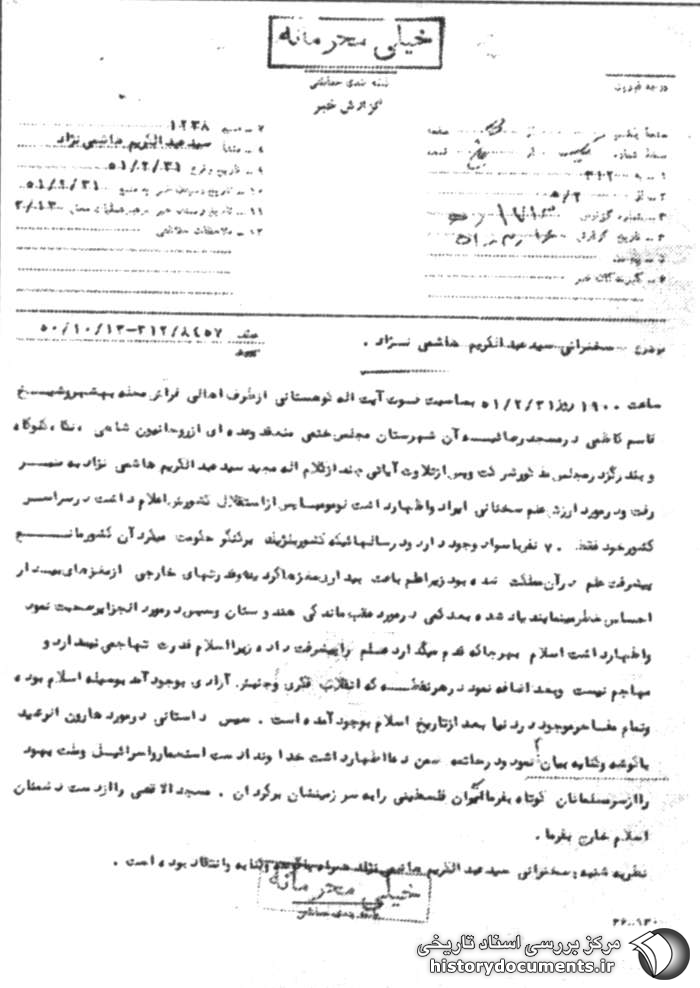 خیلی محرمانه
طبقه بندی حفاظتی
گزارش خبر
درجه فوریت
۷ - منبع ۱۲۳۸
۸ - منشأ سید عبدالکریم هاشمی نژاد
۹ - تاریخ وقوع ۵۱/۲/۳۱
۱۰ - تاریخ رسیدن خبر به منبع ۵۱/۲/۳۱
۱۱ - تاریخ رسیدن خبر به رهبر عملیات محل
۱۲ - ملاحظات حفاظتی
صفحه از صفحه
نسخه شماره از نسخه
۱ - به ۳۱۲
۲ - از
۳ - شماره گزارش
۴ - تاریخ گزارش
۵ - پیوست
۶ - گیرندگان خبر
موضوع - سخنرانی سید عبدالکریم هاشمی نژاد .
عطف ۳۱۲/۸۴۵۷-۵۰/۱۰/۱۳
ساعت ۱۹۰۰ روز ۵۱/۲/۳۱ بمناسبت فوت آیت اله کوهستانی از طرف اهالی قرائی محله بهشهر و شیخ
قاسم کاظمی در مسجد رضائیه آن شهرستان مجلس ختمی منعقد و عده ای از روحانیون شاهی ، نکا ، گلوگاه
و بندرگز در مجلس مذکور شرکت و پس از تلاوت آیاتی چند از کلام اله مجید سید عبدالکریم هاشمی نژاد به منبر
رفت و در مورد ارزش علم سخنانی ایراد و اظهار داشت پس از استقلال کشورش اعلام داشت در سراسر
کشور خود فقط ۷۰ نفر باسواد وجود دارد و در سالهائیکه کشور بلژیک بر کنگو حکومت میکرد آن کشور مانع
پیشرفت علم در آن مملکت شده بود زیرا علم باعث بیداری مغزها گردیده و قدرتهای خارجی از مغزهای بیدار
احساس خطر مینمایند یاد شده بعد کمی در مورد عقب ماندگی هندوستان و سپس در مورد الجزایر صحبت نمود
و اظهار داشت اسلام بهر جا که قدم میگذارد علم را پیشرفت داده زیرا اسلام قدرت تهاجمی نیست دارد و
مهاجم نیست و بعد اضافه نمود در هر نقطه که انقلاب فکری و جنبش آزادی بوجود آمد بوسیله اسلام بوده
و تمام مفاخر موجود در دنیا بعد از تاریخ اسلام بوجود آمده است . سپس داستانی در مورد هارون الرشید
با گوشه و کنایه بیان نمود و در خاتمه ضمن دعا اظهار داشت خداوندا دست استعمار و اسرائیل و ملت یهود
را از سر مسلمانان کوتاه بفرما آوارگان فلسطینی را به سر زمینشان برگردان . مسجد الاقصی را از دست دشمنان
اسلام خارج بفرما .
نظریه شنبه : سخنرانی سید عبدالکریم هاشمی نژاد همراه با گوشه و کنایه و انتقاد بوده است .
خیلی محرمانه
طبقه بندی حفاظتی
مرکز بررسی اسناد تاریخی
historydocuments.ir